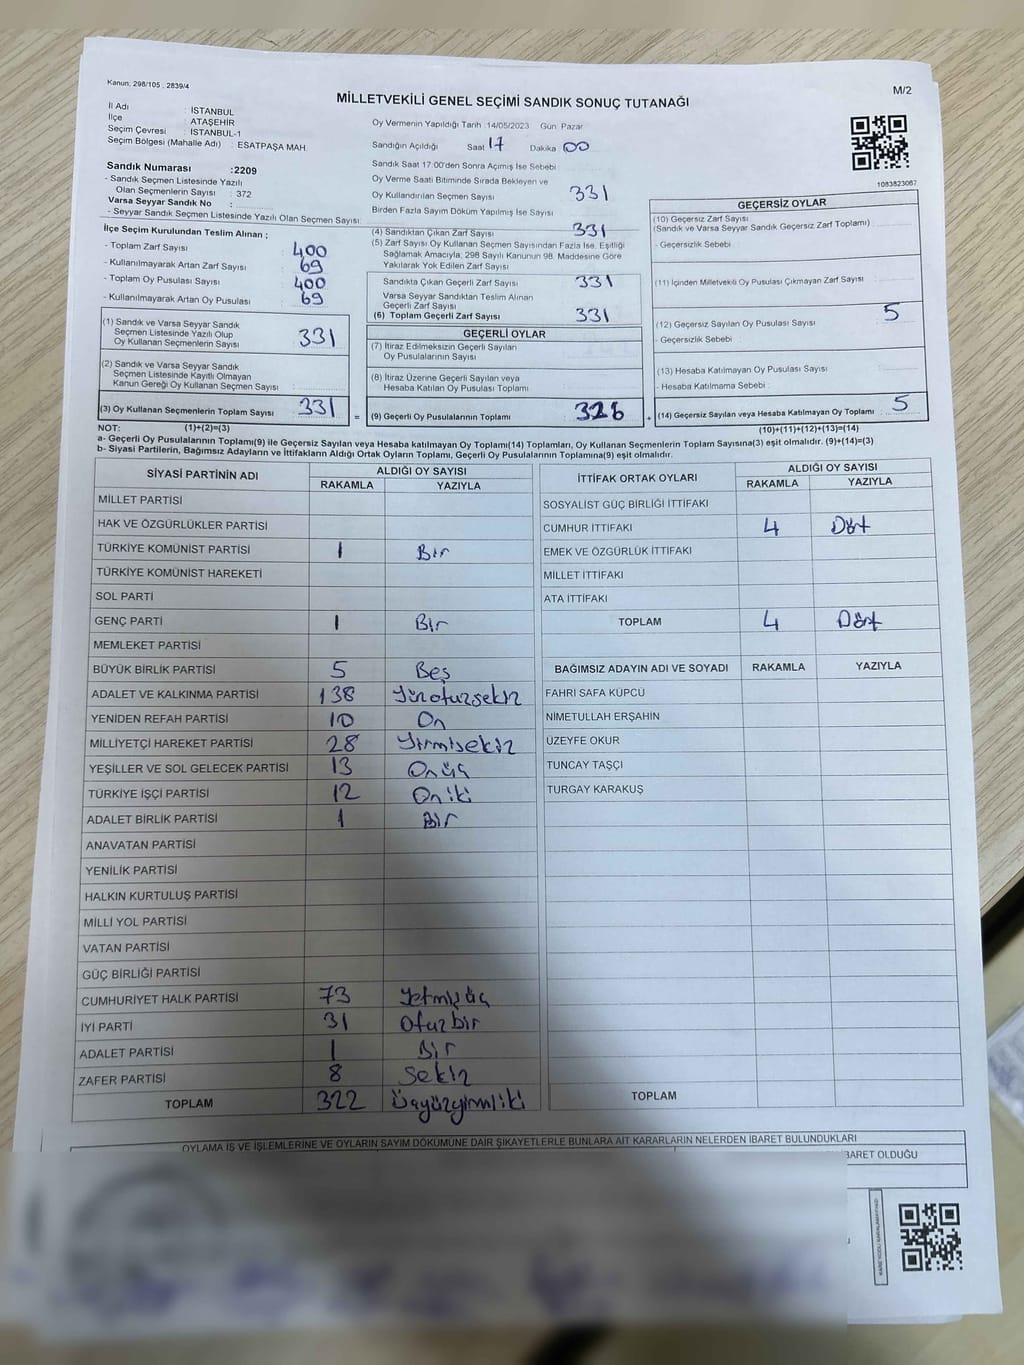 Kanun; 298/105 , 2839/4
M/2
MİLLETVEKİLİ GENEL SEÇİMİ SANDIK SONUÇ TUTANAĞI
İl Adı : İSTANBUL
İlçe : ATAŞEHİR
Seçim Çevresi : İSTANBUL-1
Seçim Bölgesi (Mahalle Adı) : ESATPAŞA MAH.
Sandık Numarası :2209
- Sandık Seçmen Listesinde Yazılı
Olan Seçmenlerin Sayısı : 372
Varsa Seyyar Sandık No :
- Seyyar Sandık Listesinde Yazılı Olan Seçmen Sayısı:
İlçe Seçim Kurulundan Teslim Alınan ;
- Toplam Zarf Sayısı : 400
- Kullanılmayarak Artan Zarf Sayısı : 69
- Toplam Oy Pusulası Sayısı : 400
- Kullanılmayarak Artan Oy Pusulası : 69
(1) Sandık ve Varsa Seyyar Sandık
Seçmen Listesinde Yazılı Olup
Oy Kullanan Seçmenlerin Sayısı : 331
(2) Sandık ve Varsa Seyyar Sandık
Seçmen Listesinde Kayıtlı Olmayan
Kanun Gereği Oy Kullanan Seçmen Sayısı :
(3) Oy Kullanan Seçmenlerin Toplam Sayısı : 331
Oy Vermenin Yapıldığı Tarih :14/05/2023 Gün: Pazar
Sandığın Açıldığı Saat 17 Dakika 00
Sandık Saat 17:00'den Sonra Açımış İse Sebebi
Oy Verme Saati Bitiminde Sırada Bekleyen ve
Oy Kullandırılan Seçmen Sayısı 331
Birden Fazla Sayım Döküm Yapılmış İse Sayısı
(4) Sandıktan Çıkan Zarf Sayısı 331
(5) Zarf Sayısı Oy Kullanan Seçmen Sayısından Fazla İse, Eşitliği
Sağlamak Amacıyla; 298 Sayılı Kanunun 98. Maddesine Göre
Yakılarak Yok Edilen Zarf Sayısı
Sandıkta Çıkan Geçerli Zarf Sayısı 331
Varsa Seyyar Sandıktan Teslim Alınan
Geçerli Zarf Sayısı
(6) Toplam Geçerli Zarf Sayısı 331
GEÇERLİ OYLAR
(7) İtiraz Edilmeksizin Geçerli Sayılan
Oy Pusulalarının Sayısı
(8) İtiraz Üzerine Geçerli Sayılan veya
Hesaba Katılan Oy Pusulası Toplamı
= (9) Geçerli Oy Pusulalarının Toplamı : 326
1083823067
GEÇERSİZ OYLAR
(10) Geçersiz Zarf Sayısı
(Sandık ve Varsa Seyyar Sandık Geçersiz Zarf Toplamı)
- Geçersizlik Sebebi
(11) İçinden Milletvekili Oy Pusulası Çıkmayan Zarf Sayısı
(12) Geçersiz Sayılan Oy Pusulası Sayısı : 5
- Geçersizlik Sebebi :
(13) Hesaba Katılmayan Oy Pusulası Sayısı
- Hesaba Katılmama Sebebi
+ (14) Geçersiz Sayılan veya Hesaba Katılmayan Oy Toplamı : 5
NOT: (1)+(2)=(3)
(10)+(11)+(12)+(13)=(14)
a- Geçerli Oy Pusulalarının Toplamı(9) ile Geçersiz Sayılan veya Hesaba katılmayan Oy Toplamı(14) Toplamları, Oy Kullanan Seçmenlerin Toplam Sayısına(3) eşit olmalıdır. (9)+(14)=(3)
b- Siyasi Partilerin, Bağımsız Adayların ve İttifakların Aldığı Ortak Oyların Toplamı, Geçerli Oy Pusulalarının Toplamına(9) eşit olmalıdır.
SİYASİ PARTİNİN ADI ALDIĞI OY SAYISI
RAKAMLA YAZIYLA
MİLLET PARTİSİ
HAK VE ÖZGÜRLÜKLER PARTİSİ
TÜRKİYE KOMÜNİST PARTİSİ 1 Bir
TÜRKİYE KOMÜNİST HAREKETİ
SOL PARTİ
GENÇ PARTİ 1 Bir
MEMLEKET PARTİSİ
BÜYÜK BİRLİK PARTİSİ 5 Beş
ADALET VE KALKINMA PARTİSİ 138 Yüzotuzsekiz
YENİDEN REFAH PARTİSİ 10 On
MİLLİYETÇİ HAREKET PARTİSİ 28 Yirmisekiz
YEŞİLLER VE SOL GELECEK PARTİSİ 13 Onüç
TÜRKİYE İŞÇİ PARTİSİ 12 Oniki
ADALET BİRLİK PARTİSİ 1 Bir
ANAVATAN PARTİSİ
YENİLİK PARTİSİ
HALKIN KURTULUŞ PARTİSİ
MİLLİ YOL PARTİSİ
VATAN PARTİSİ
GÜÇ BİRLİĞİ PARTİSİ
CUMHURİYET HALK PARTİSİ 73 Yetmişüç
İYİ PARTİ 31 Otuzbir
ADALET PARTİSİ 1 Bir
ZAFER PARTİSİ 8 Sekiz
TOPLAM 322 Üçyüzyirmiiki
İTTİFAK ORTAK OYLARI ALDIĞI OY SAYISI
RAKAMLA YAZIYLA
SOSYALİST GÜÇ BİRLİĞİ İTTİFAKI
CUMHUR İTTİFAKI 4 Dört
EMEK VE ÖZGÜRLÜK İTTİFAKI
MİLLET İTTİFAKI
ATA İTTİFAKI
TOPLAM 4 Dört
BAĞIMSIZ ADAYIN ADI VE SOYADI RAKAMLA YAZIYLA
FAHRİ SAFA KÜPCÜ
NİMETULLAH ERŞAHİN
ÜZEYFE OKUR
TUNCAY TAŞÇI
TURGAY KARAKUŞ
TOPLAM
OYLAMA İŞ VE İŞLEMLERİNE VE OYLARIN SAYIM DÖKÜMÜNE DAİR ŞİKAYETLERLE BUNLARA AİT KARARLARIN NELERDEN İBARET BULUNDUKLARI
İBARET OLDUĞU